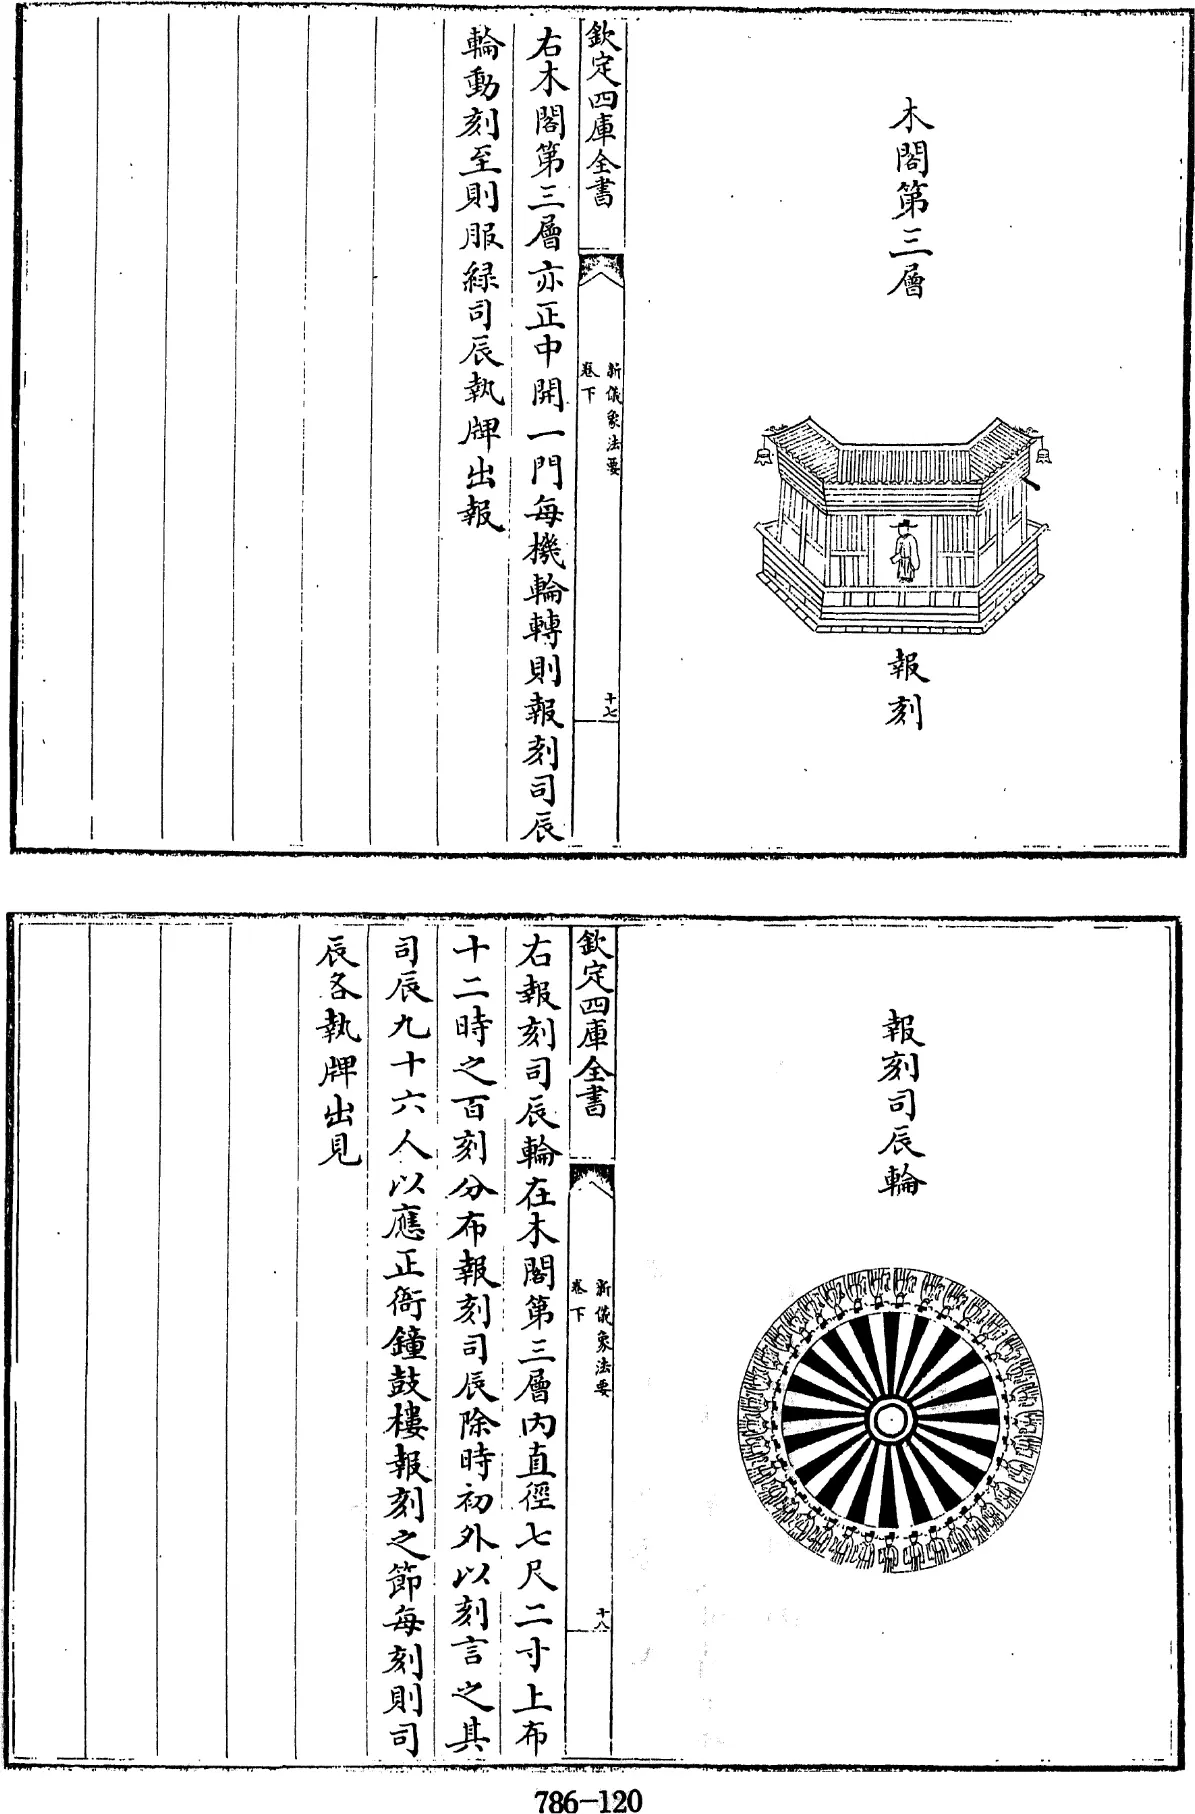 木閣第三層
報刻
欽定四庫全書
新儀象法要
卷下
十七
右木閣第三層亦正中開一門每機輪轉則報刻司辰
輪動刻至則服綠司辰執牌出報
報刻司辰輪
欽定四庫全書
新儀象法要
卷下
十八
右報刻司辰輪在木閣第三層內直徑七尺二寸上布
十二時之百刻分布報刻司辰除時初外以刻言之其
司辰九十六人以應正衙鐘鼓樓報刻之節每刻則司
辰各執牌出見
786-120